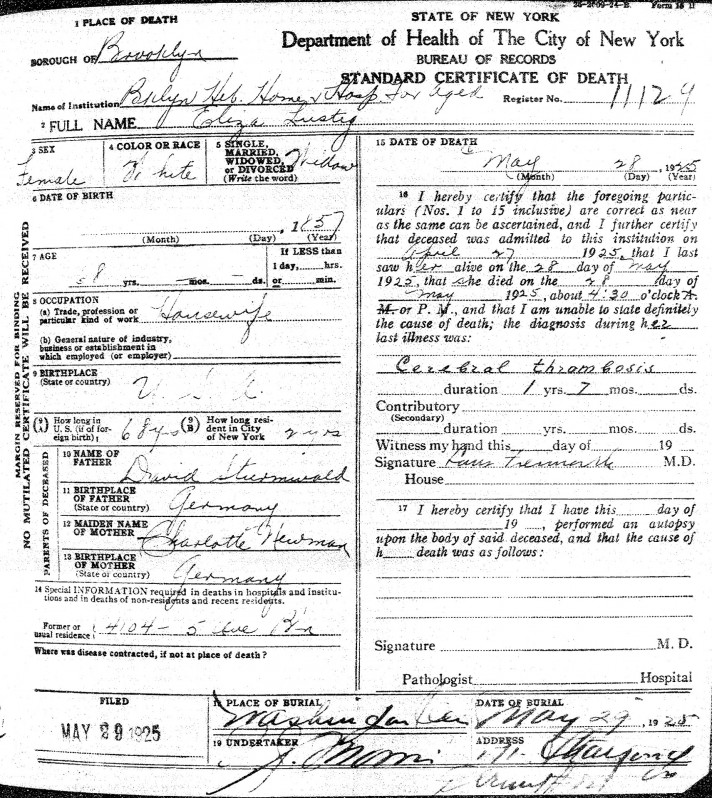 26-2099-24-B Form 16 H
1 PLACE OF DEATH
STATE OF NEW YORK
BOROUGH OF Brooklyn
Department of Health of The City of New York
BUREAU OF RECORDS
STANDARD CERTIFICATE OF DEATH
Name of Institution Bklyn Heb. Home & Hosp for Aged Register No. 11129
2 FULL NAME Eliza Lustig
3 SEX Female
4 COLOR OR RACE White
5 SINGLE, MARRIED, WIDOWED, or DIVORCED (Write the word) Widow
6 DATE OF BIRTH
, 1857
(Month) (Day) (Year)
7 AGE
68 yrs. — mos. — ds.
If LESS than
1 day, hrs.
or min.
8 OCCUPATION
(a) Trade, profession or
particular kind of work Housewife
(b) General nature of industry,
business or establishment in
which employed (or employer)
9 BIRTHPLACE
(State or country) U.S.A.
(9 A) How long in
U. S. (if of for-
eign birth) 68 yrs
(9 B) How long resi-
dent in City
of New York 2 yrs
PARENTS OF DECEASED
10 NAME OF
FATHER David Sturmwald
11 BIRTHPLACE
OF FATHER
(State or country) Germany
12 MAIDEN NAME
OF MOTHER Charlotte Newman
13 BIRTHPLACE
OF MOTHER
(State or country) Germany
14 Special INFORMATION required in deaths in hospitals and institu-
tions and in deaths of non-residents and recent residents.
Former or
usual residence 4104 - 5 Ave Bkn
Where was disease contracted, if not at place of death?
MARGIN RESERVED FOR BINDING
NO MUTILATED CERTIFICATE WILL BE RECEIVED
15 DATE OF DEATH
May 28, 1925
(Month) (Day) (Year)
16 I hereby certify that the foregoing partic-
ulars (Nos. 1 to 15 inclusive) are correct as near
as the same can be ascertained, and I further certify
that deceased was admitted to this institution on
April 27 1925, that I last
saw her alive on the 28 day of May
1925, that she died on the 28 day of
May 1925, about 4:30 o'clock A.
M. or P. M., and that I am unable to state definitely
the cause of death; the diagnosis during her
last illness was:
Cerebral thrombosis
duration 1 yrs. 7 mos. ds.
Contributory
(Secondary)
duration yrs. mos. ds.
Witness my hand this day of 19
Signature M.D.
House
17 I hereby certify that I have this day of
19 , performed an autopsy
upon the body of said deceased, and that the cause of
h death was as follows:
Signature M. D.
Pathologist Hospital
FILED
MAY 29 1925
18 PLACE OF BURIAL
Washington Cem
DATE OF BURIAL
May 29, 1925
19 UNDERTAKER
J. Morris
ADDRESS